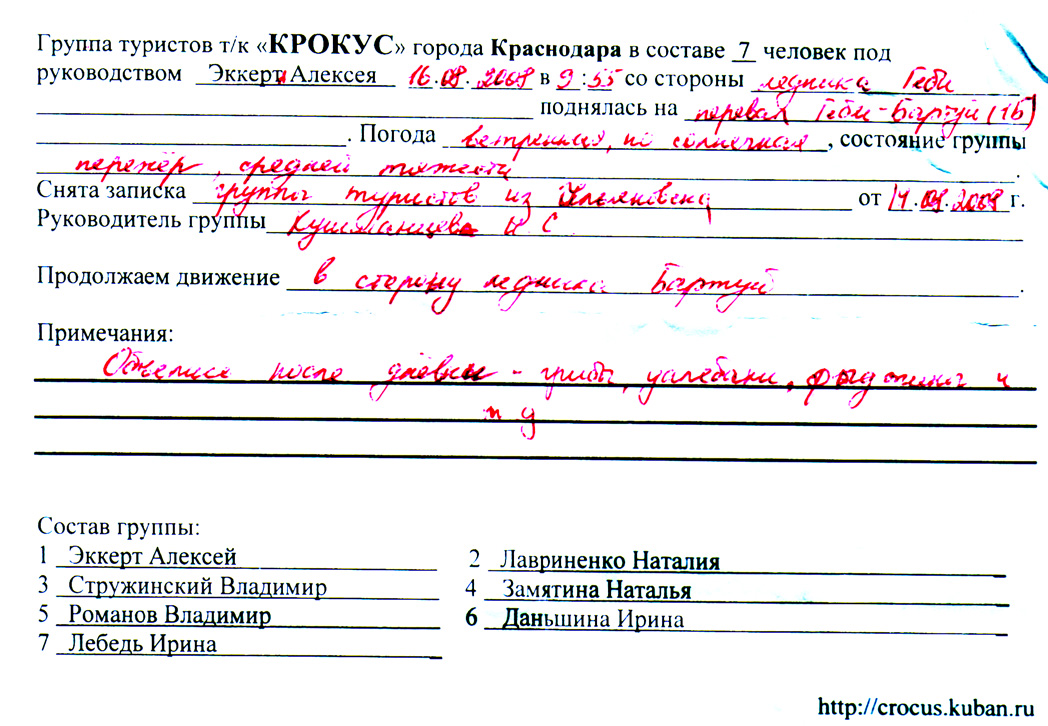 Группа туристов т/к «КРОКУС» города Краснодара в составе 7 человек под
руководством Эккерт Алексея 16.08.2008 в 9:55 со стороны ледника Геби
поднялась на перевал Геби-Бартуй (1Б)
. Погода ветренная, но солнечная, состояние группы
пережор, средней тяжести.
Снята записка группы туристов из Ульяновска от 14.08.2008 г.
Руководитель группы И С
Продолжаем движение в сторону ледника Бартуй.
Примечания:
после днёвки - грибы, и
т д
Состав группы:
1 Эккерт Алексей 2 Лавриненко Наталия
3 Стружинский Владимир 4 Замятина Наталья
5 Романов Владимир 6 Даньшина Ирина
7 Лебедь Ирина
http://crocus.kuban.ru